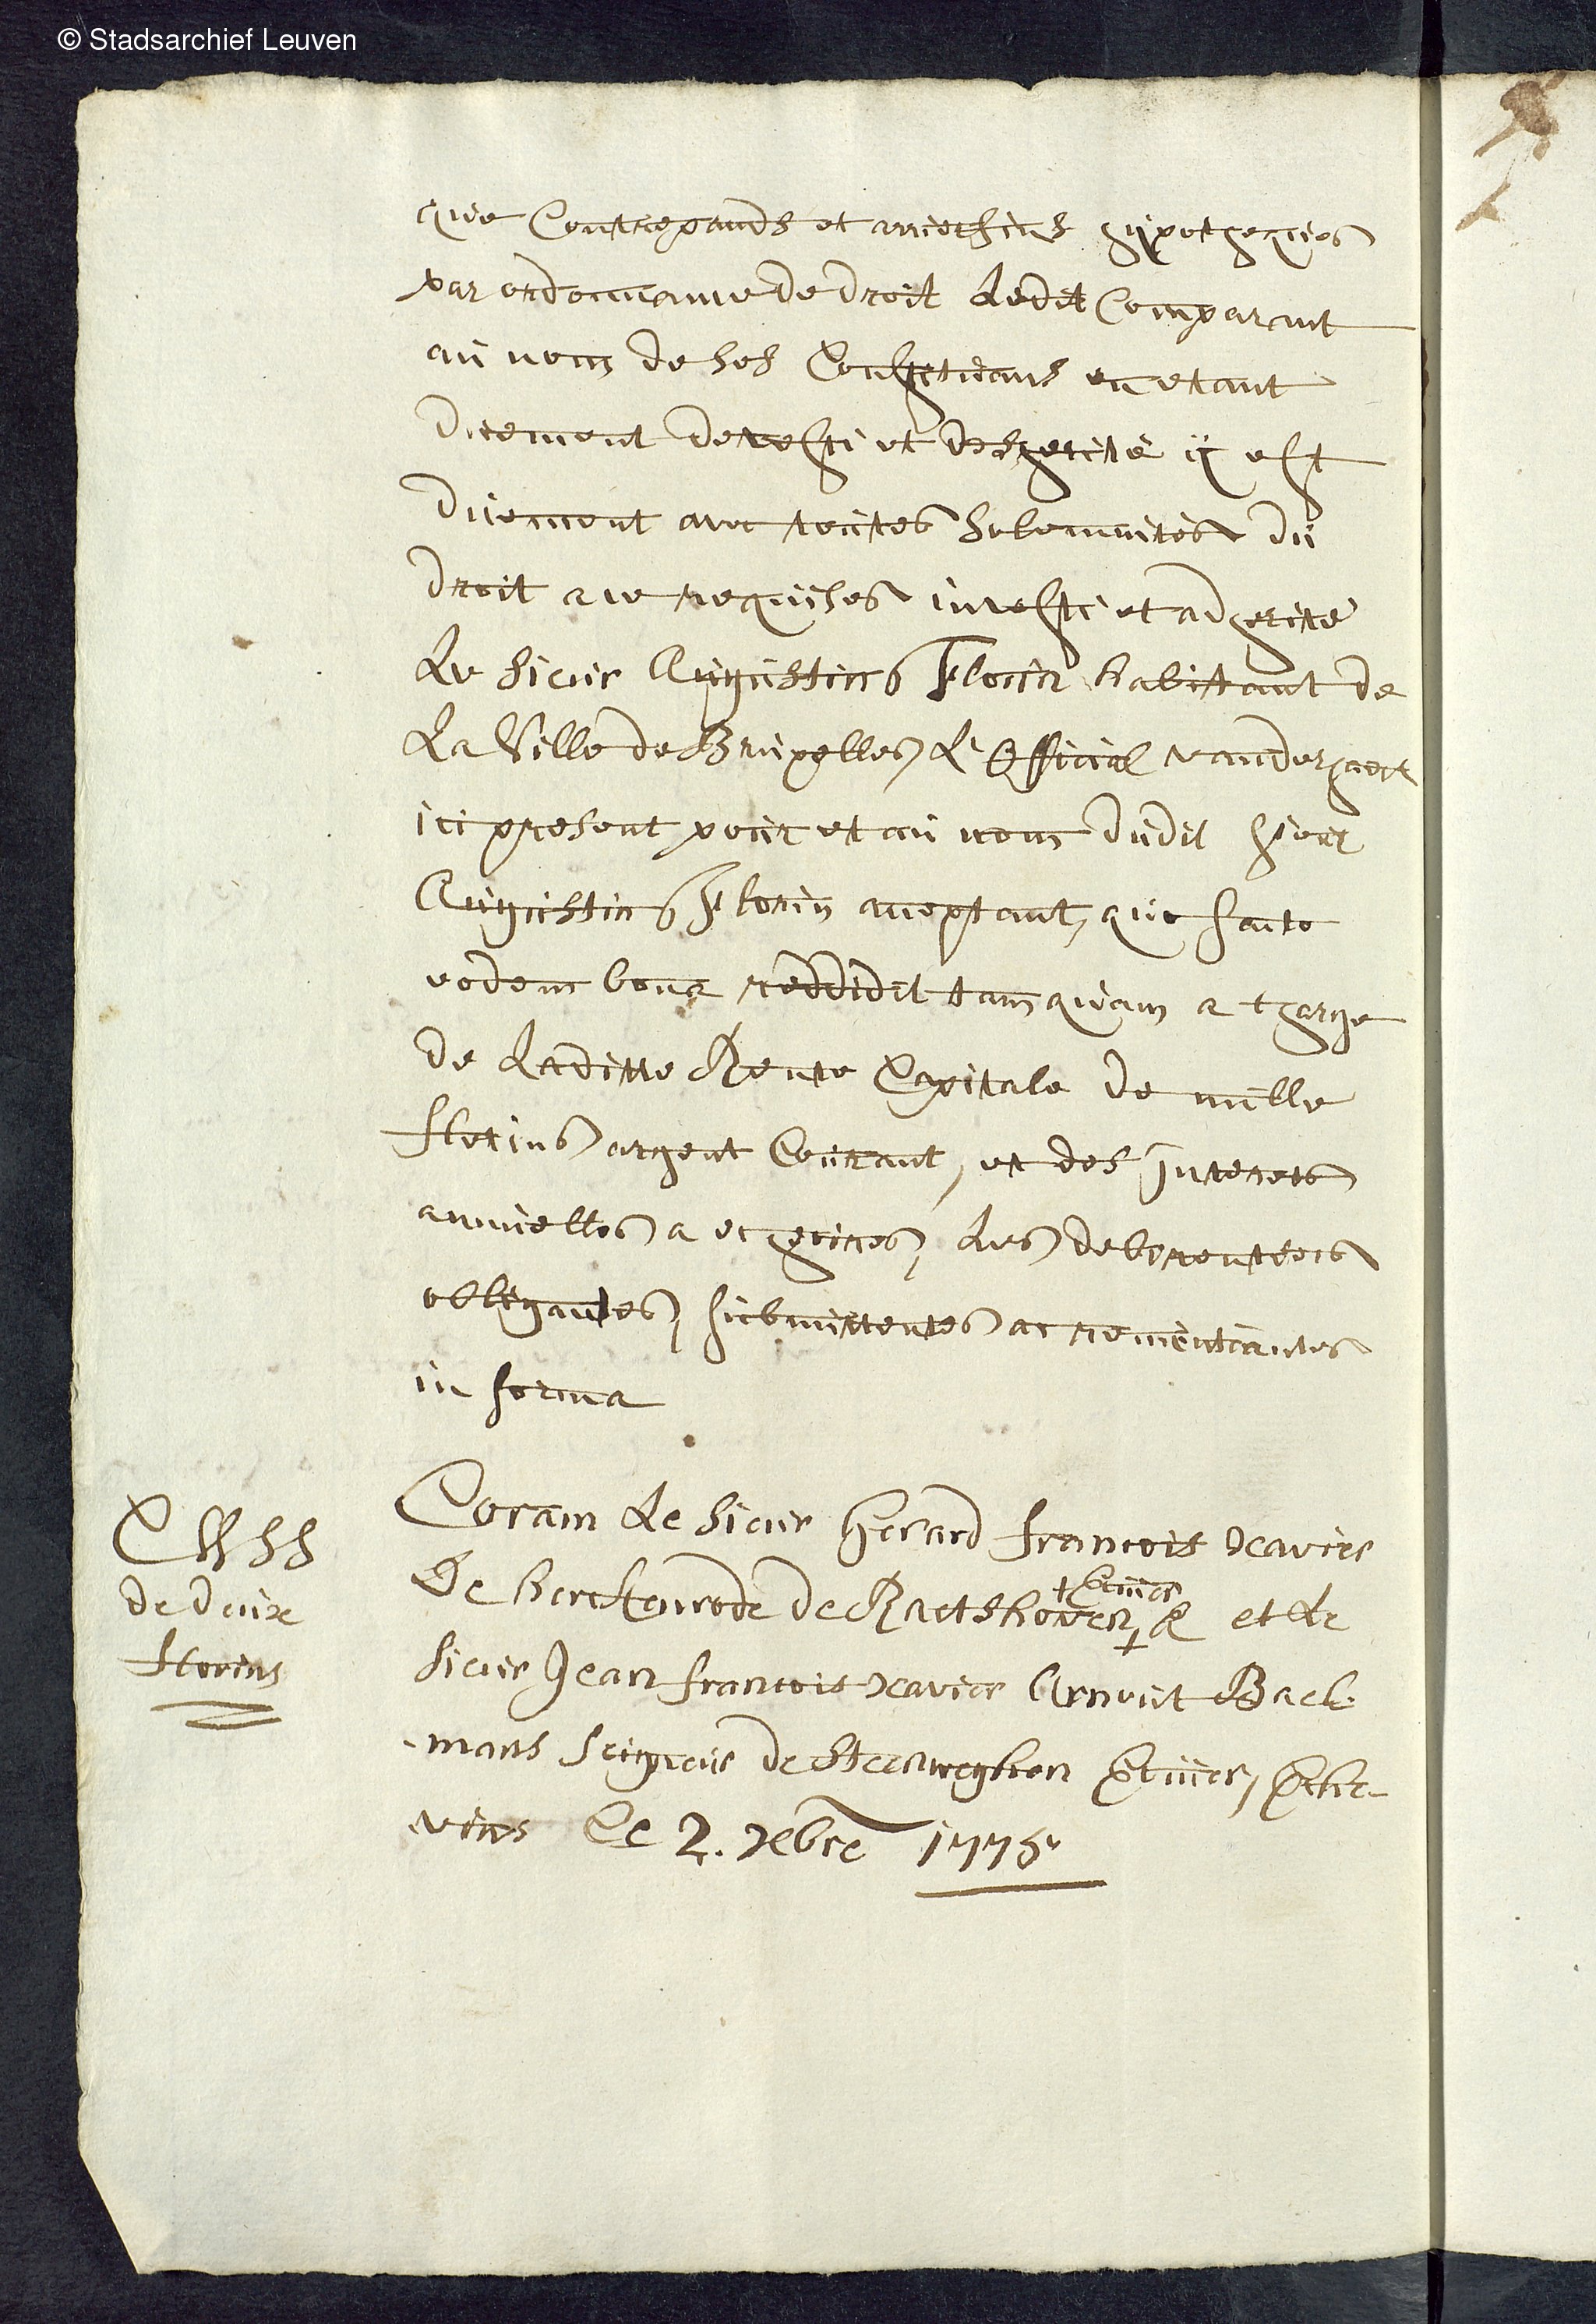 © Stadsarchief Leuven
que Contrepands et arrierfiefs hÿpothequés
par ordonnance de droit ledit Comparant
au nom de ses Constituans en etant
duement devesti et desherité ÿ est
duement avec toutes solemnités du
droit a ce requises investi et adherité
Le sieur Augustin Florin habitant de
La Ville de Bruxelles, L'official
ici present pour et au nom dudit sieur
Augustin Florin acceptant, quo facto
eodem bona reddidit tamquam a charge
de Laditte Rente Capitale de mille
florins argent Courant, et des Interets
annuelles a echeoires, Les debirentiers
obligantes, submittentes ac renuntiantes
in forma
Coram Le sieur Gerard francois xavier
De herckenrode de Raetshoven + & et Le
+ Ecuier
sieur Jean francois xavier Arnout Baek-
mans seigneur de Steenweghen Ecuier, Eche-
vins Ce 2. xbre 1775
de deux
florins